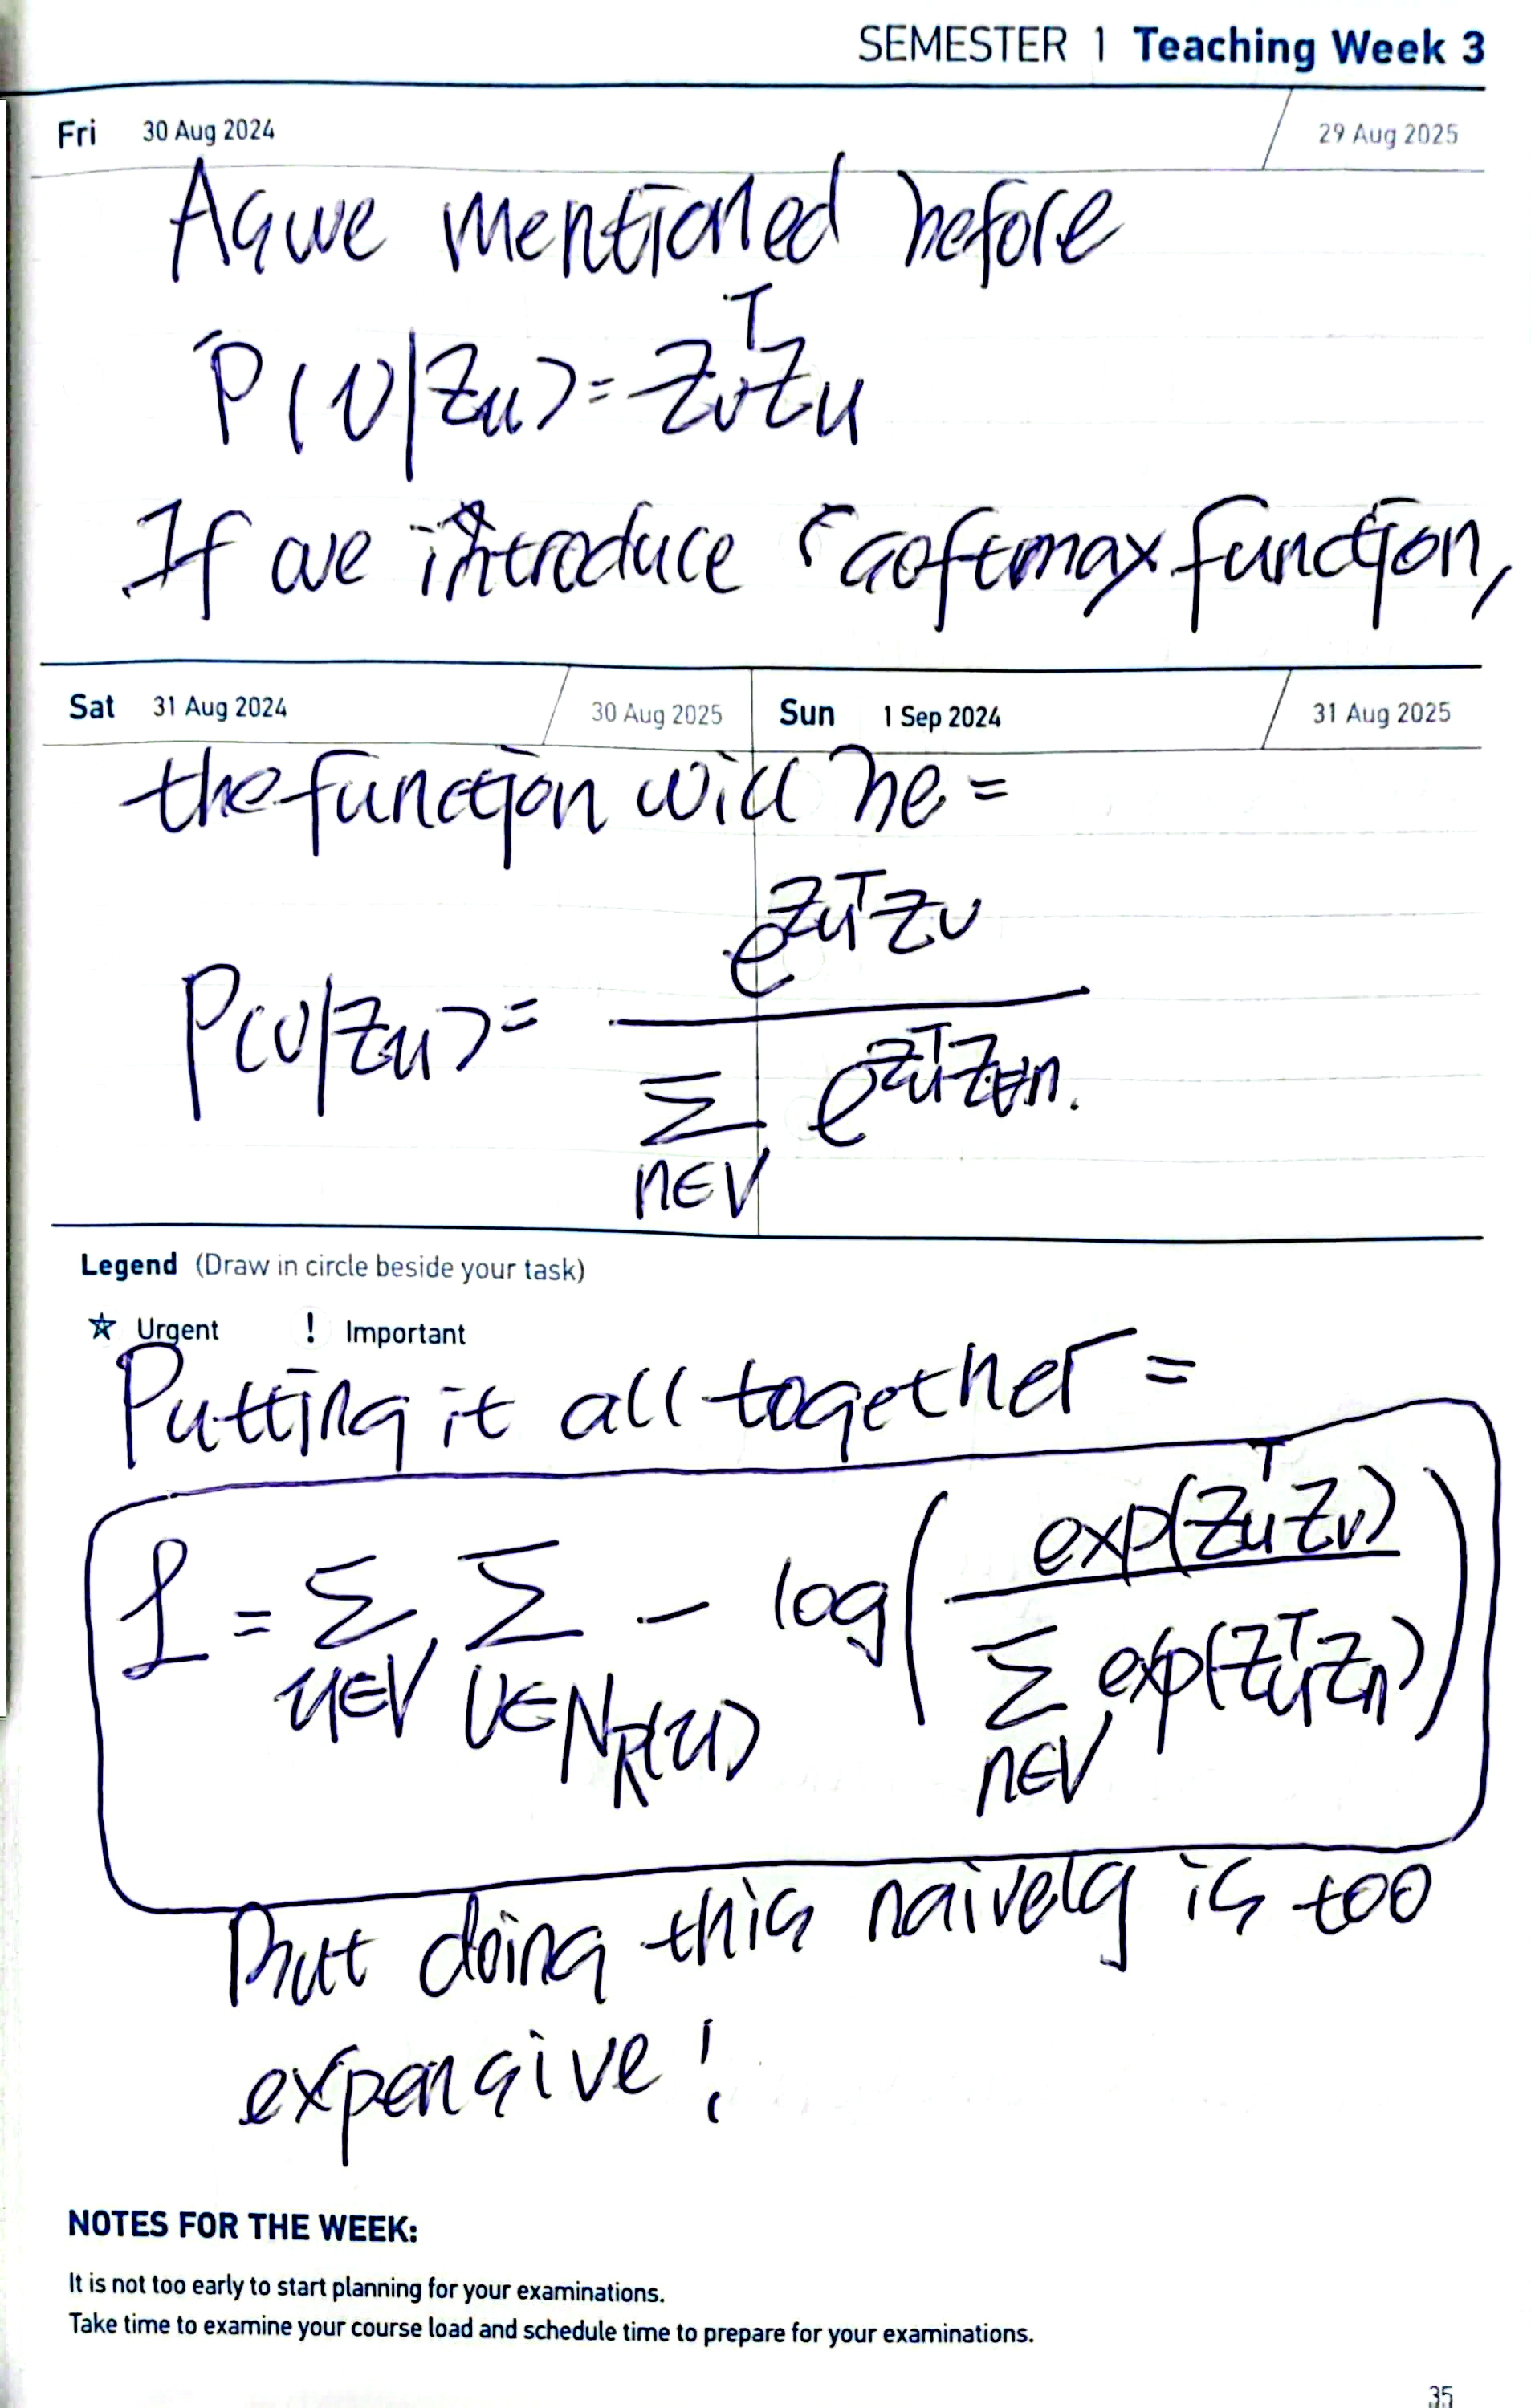 SEMESTER 1 Teaching Week 3
Fri 30 Aug 2024 29 Aug 2025
As we mentioned before
P(v|Zu) = Zv^T Zu
If we introduce softmax function,
Sat 31 Aug 2024 30 Aug 2025 Sun 1 Sep 2024 31 Aug 2025
the function will be =
P(v|Zu) = e^{Zu^T Zv} / Σ_{n∈V} e^{Zu^T Zn}.
Legend (Draw in circle beside your task)
☆ Urgent ! Important
Putting it all together =
L = Σ_{u∈V} Σ_{v∈N_R(u)} - log( exp(Zu^T Zv) / Σ_{n∈V} exp(Zu^T Zn) )
But doing this naively is too
expensive!
NOTES FOR THE WEEK:
It is not too early to start planning for your examinations.
Take time to examine your course load and schedule time to prepare for your examinations.
35